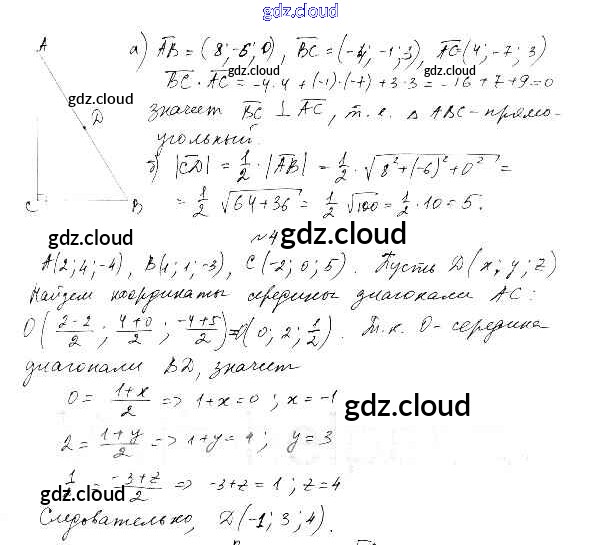 gdz.cloud
A
а) AB = (8; -6; 0), BC = (-4; -1; 3), AC (4; -7; 3)
BC · AC = -4·4 + (-1)·(-7) + 3·3 = -16 + 7 + 9 = 0
gdz.cloud gdz.cloud
gdz.cloud
значит BC ⊥ AC, т.е. △ ABC - прямо-
D
угольный.
б) |CD| = 1/2 · |AB| = 1/2 · √8² + (-6)² + 0² =
= 1/2 √64 + 36 = 1/2 √100 = 1/2 · 10 = 5.
C B
gdz.cloud
№4
gdz.cloud
A(2; 4; -4), B(1; 1; -3), C(-2; 0; 5). Пусть D(x; y; z)
Найдем координаты середины диагонали AC:
O((2-2)/2; (4+0)/2; (-4+5)/2) = O(0; 2; 1/2). Т.к. O - середина
диагонали BD, значит
0 = (1+x)/2 => 1+x = 0; x = -1
gdz.cloud
2 = (1+y)/2 => 1+y = 4; y = 3
1/2 = (-3+z)/2 => -3+z = 1; z = 4
gdz.cloud
gdz.cloud
Следовательно, D(-1; 3; 4).